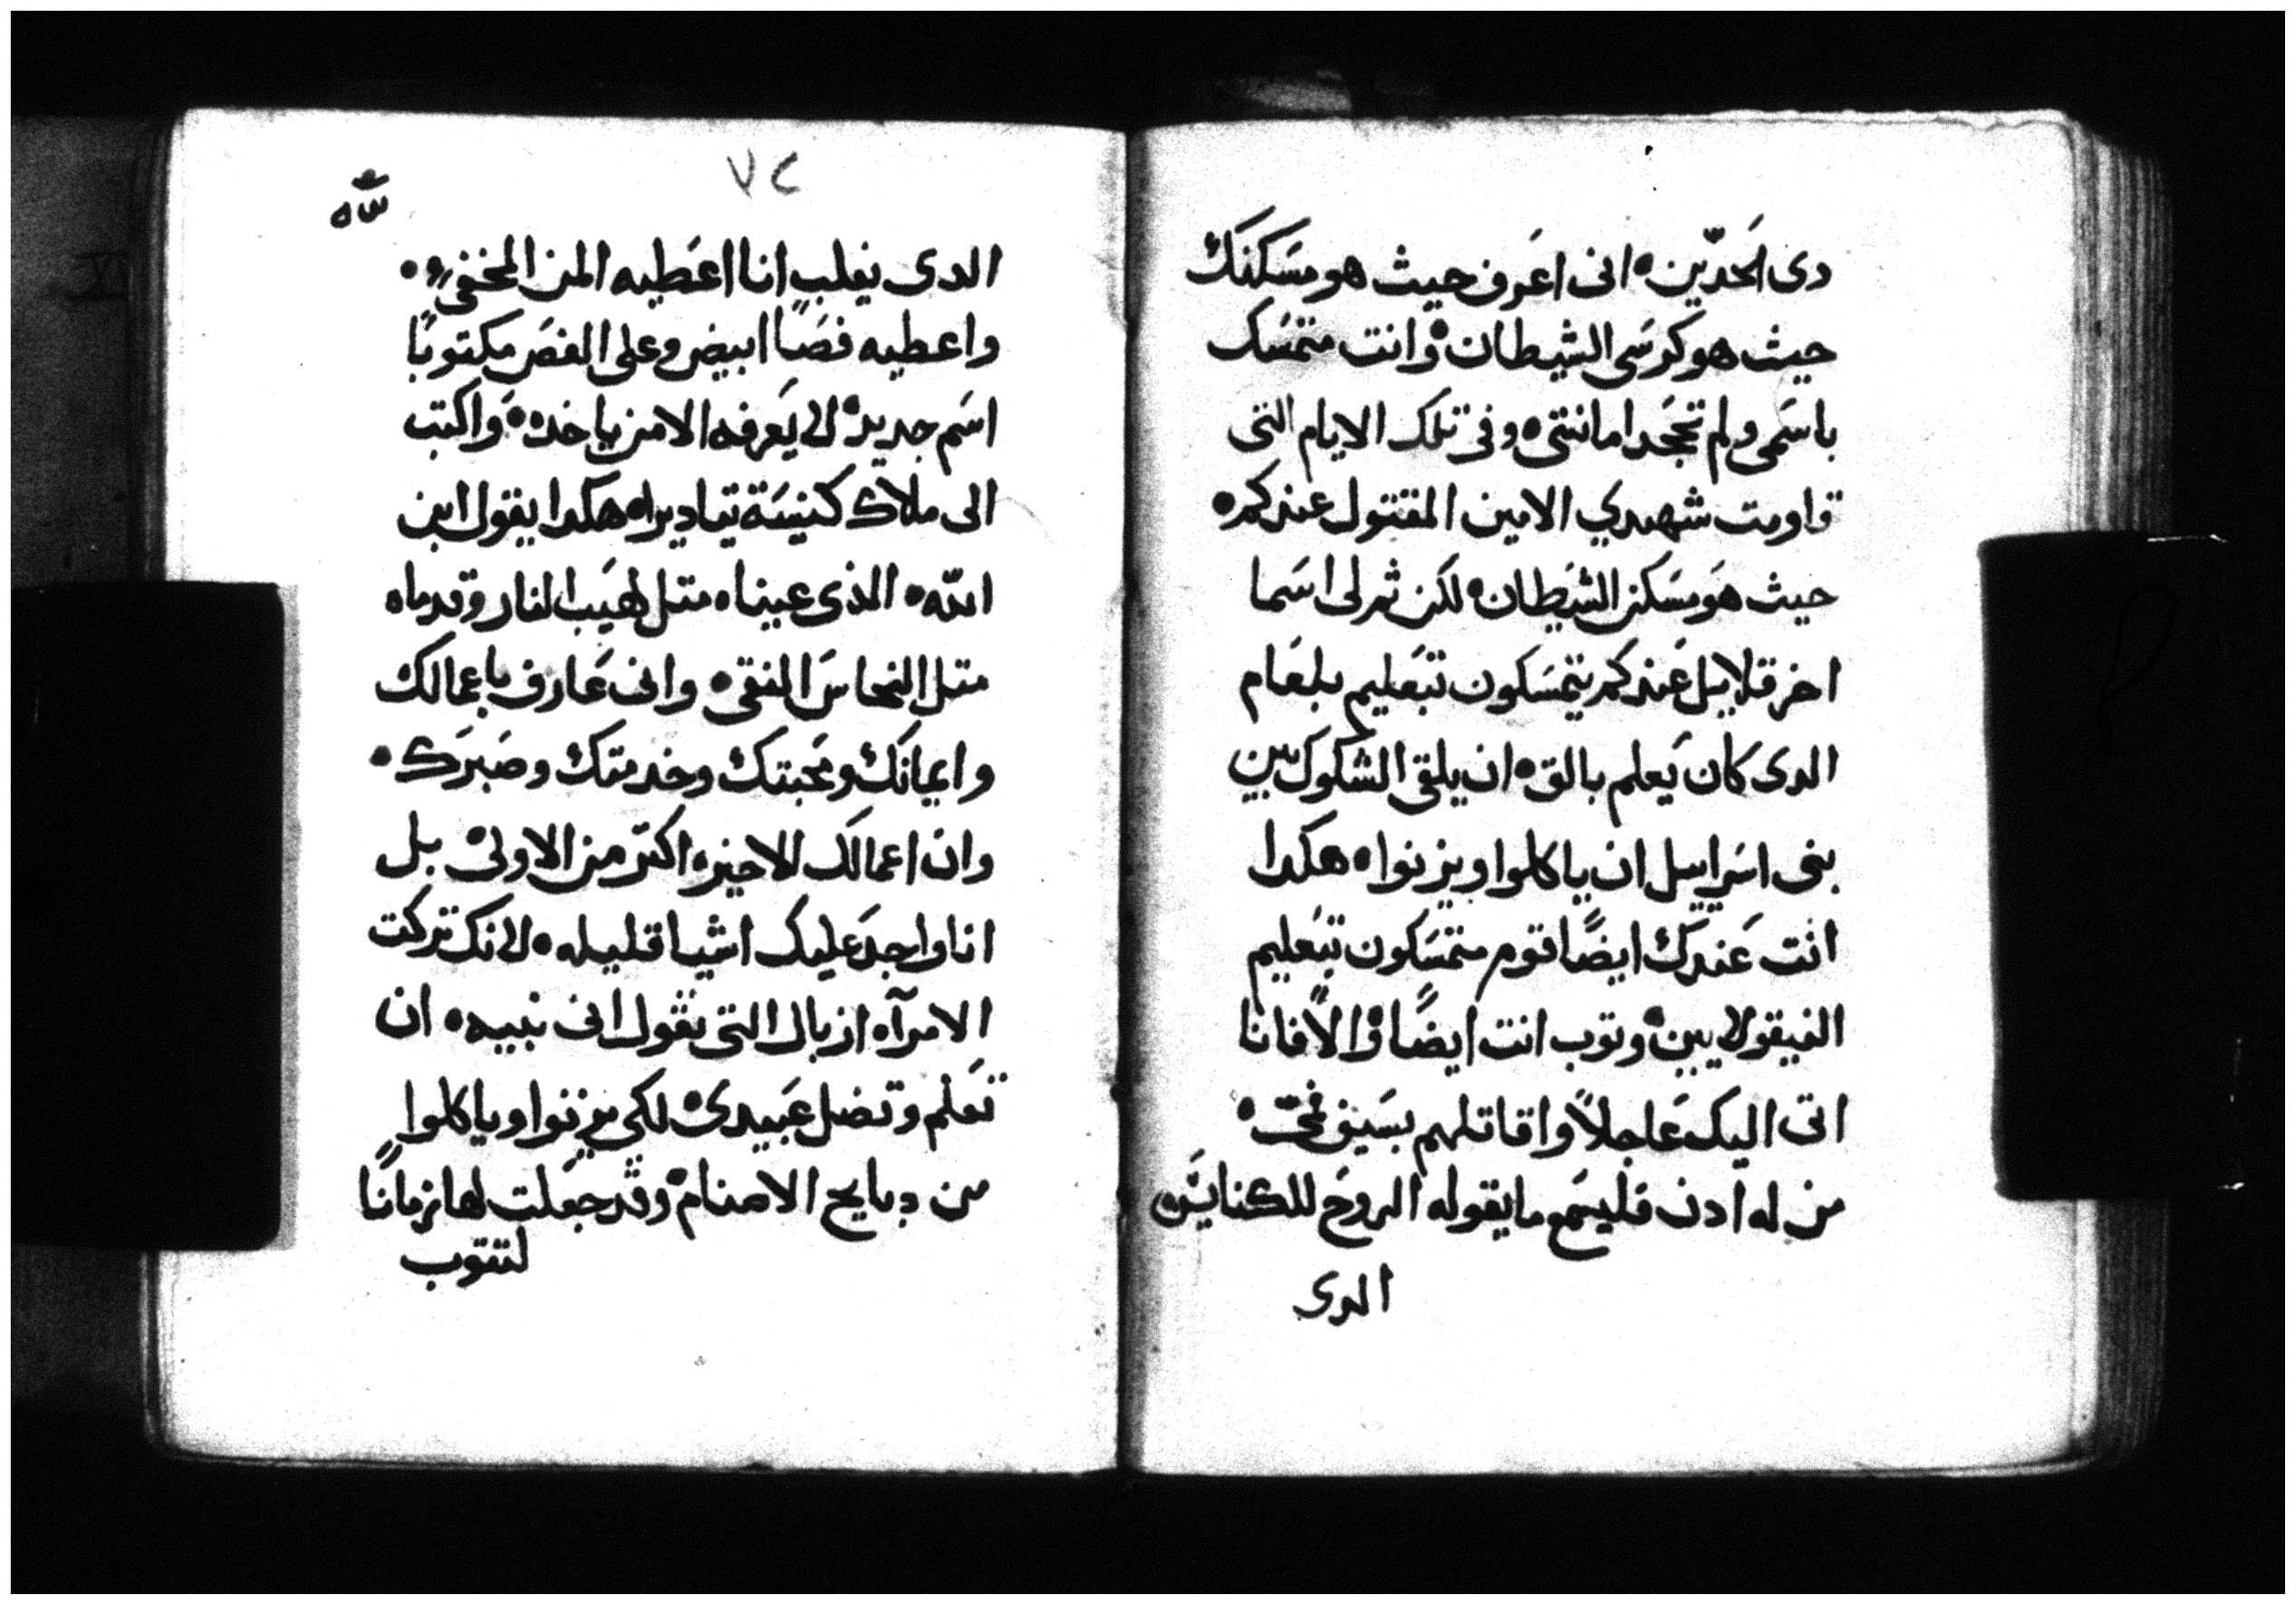 دى الحدّين ۰ انى اعرف حيث هو مسكنك
حيث هو كرسى الشيطان ۰ وانت متمسك
باسمى ولم تجحد امانتى ۰ وفى تلك الايام التى
قاومت شهيدي الامين المقتول عندكم ۰
حيث هو مسكن الشيطان ۰ لكن ثم لى اسما
اخر قلايل عندكم يتمسكون بتعليم بلعام
الدى كان يعلم بالق ۰ ان يلقى الشكوك بين
بنى اسراييل ان ياكلوا ويزنوا ۰ هكدا
انت عندك ايضًا قوم متمسكون بتعليم
النيقولايين ۰ وتوب انت ايضًا ۰ والا فانا
اتى اليك عاجلاً واقاتلهم بسيف فمى ۰
من له ادن فليسمع ما يقوله الروح للكنايس ۰
الدى
٧٢
الدى يغلب انا اعطيه المن المخفى ۰
واعطيه فصًا ابيض وعلى الفص مكتوبًا
اسم جديد ۰ لا يعرفه الا من ياخده ۰ واكتب
الى ملاك كنيسة تياديرا ۰ هكدا يقول ابن
الله ۰ الذى عيناه متل لهيب النار وقدماه
متل النحاس النقى ۰ وانى عارف باعمالك
وايمانك ومحبتك وخدمتك وصبرك ۰
وان اعمالك الاخيره اكتر من الاولى ۰ بل
انا واجد عليك اشيا قليله ۰ لانك تركت
الامرآه ازبال التى تقول انى نبيه ۰ ان
تعلم وتضل عبيدى ۰ لكى يزنوا وياكلوا
من دبايح الاصنام ۰ وقد جعلت لها زمانًا
لتتوب